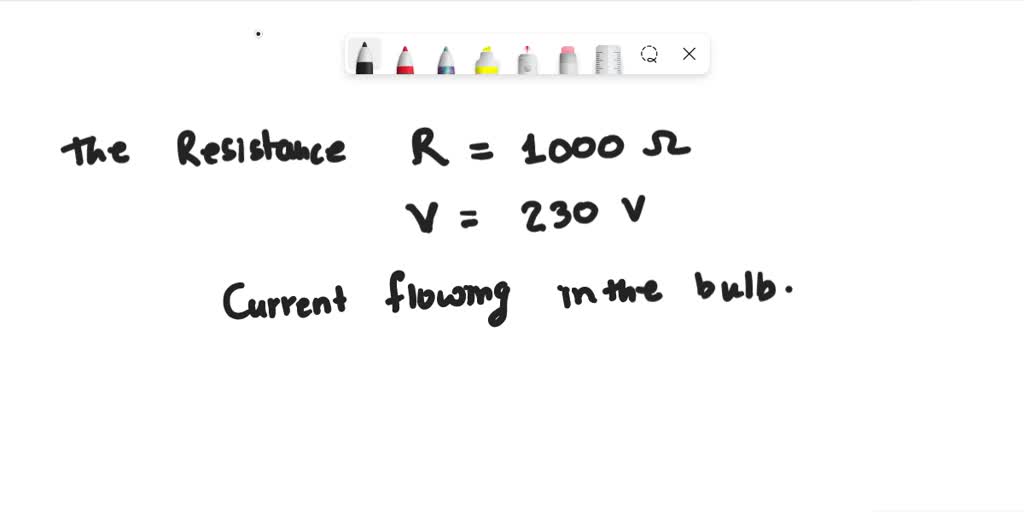 the Resistance R = 1000 Ω
V = 230 V
Current flowing in the bulb.